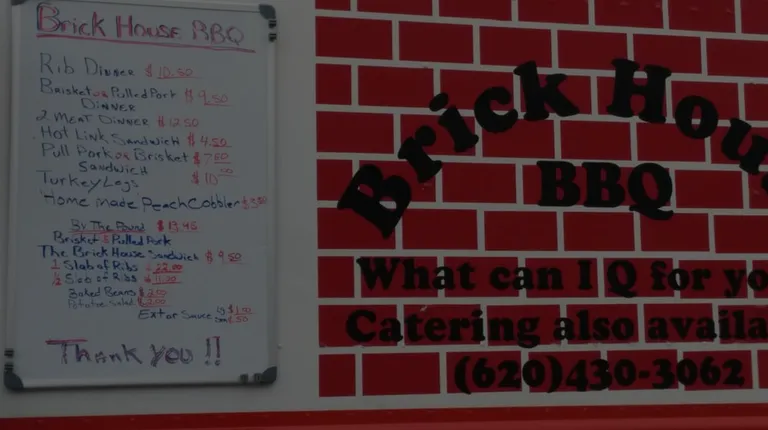 Brick House BBQ
Rib Dinner $10.50
Brisket or Pulled Pork $9.50
Dinner
2 Meat Dinner $12.50
Hot Link Sandwich $4.50
Pull Pork or Brisket $7.50
Sandwich
Turkey Legs $10.00
Home Made Peach Cobbler $3.50
By The Pound $13.45
Brisket Pulled Pork
The Brick House Sandwich $9.50
1 Slab of Ribs 22.00
½ Slab of Ribs 11.00
Baked Beans $2.00
Potatoe Salad $2.00
Extar Sauce $1.50
.50
Thank you !!
Brick Hou
BBQ
What can I Q for yo
Catering also availa
(620)430-3062